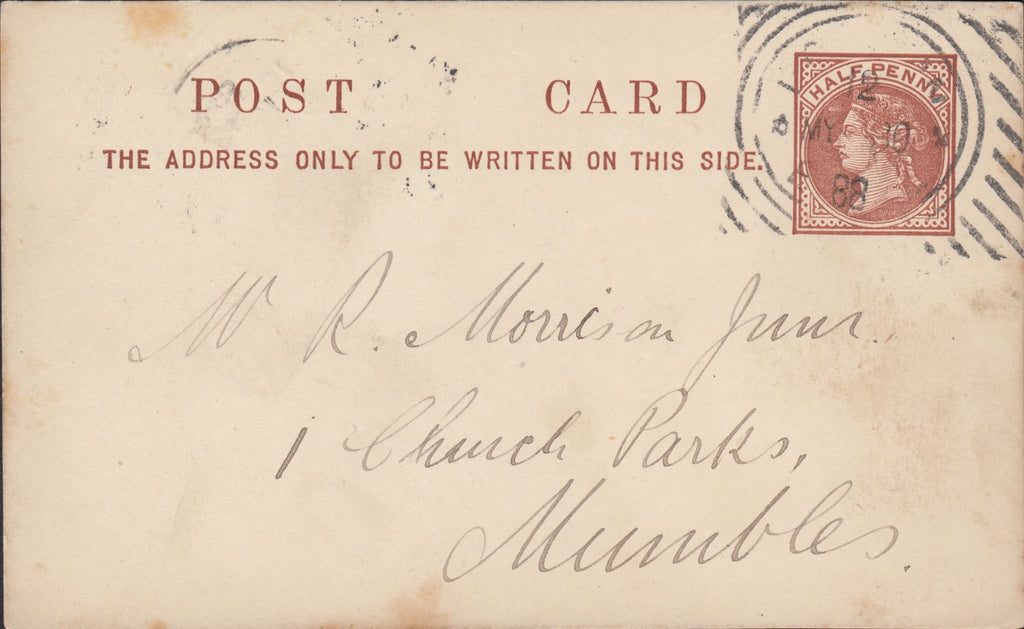 POST CARD
THE ADDRESS ONLY TO BE WRITTEN ON THIS SIDE.
HALF PENNY
12
MY 10
88
W R. Morrison Junr.
1 Church Parks,
Mumbles.